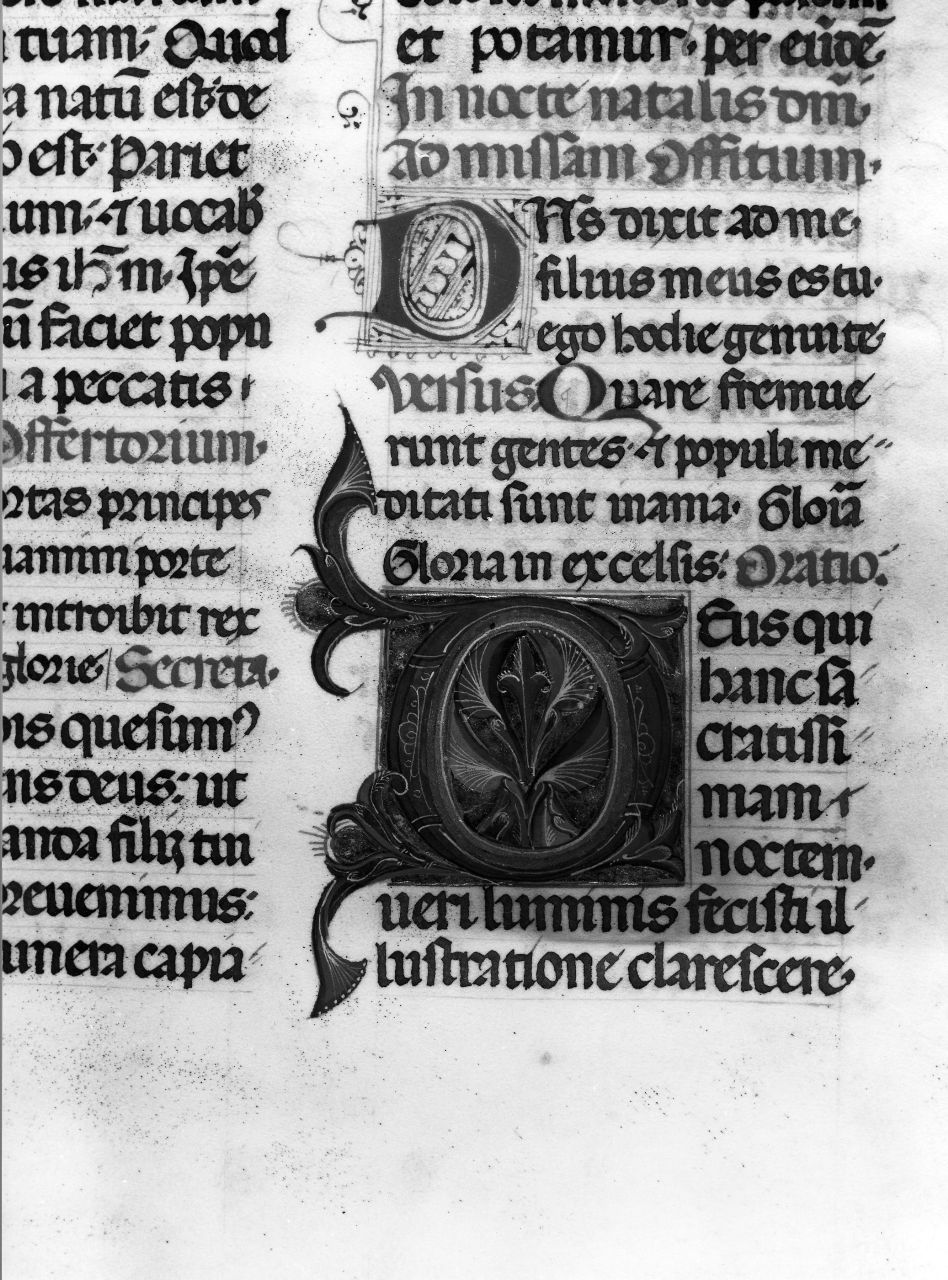 tuam: Quod
a natū est de
est: Pariet
um: ⁊ uocab
us ih̄m. Ipē
ū faciet popu
a peccatis
Offertorium.
rtas principes
porte
introibit rex
glorie Secreta.
is quesumꝰ
ns deus: ut
anda filij tui
reuenimus:
unera capia
et potamur. per eūdē.
In nocte natalis dn̄i.
Ad missam Offitium.
DNS dixit ad me.
filius meus es tu.
ego hodie genui te.
versus. Quare fremue
runt gentes. ⁊ populi me
ditati sunt inania. Glōia
Gloria in excelsis: Oratio.
DEus qui
hanc sā
cratissi
mam
noctem.
ueri luminis fecisti il
lustratione clarescere.